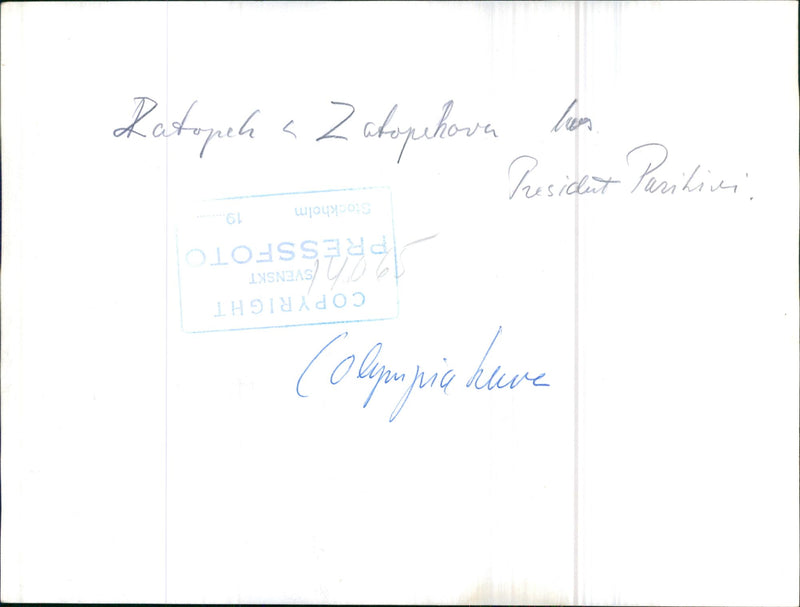 Zatopek & Zatopekova hos
President Paasikivi.
COPYRIGHT
SVENSKT
PRESSFOTO
Stockholm 19......
14065
(Olympia